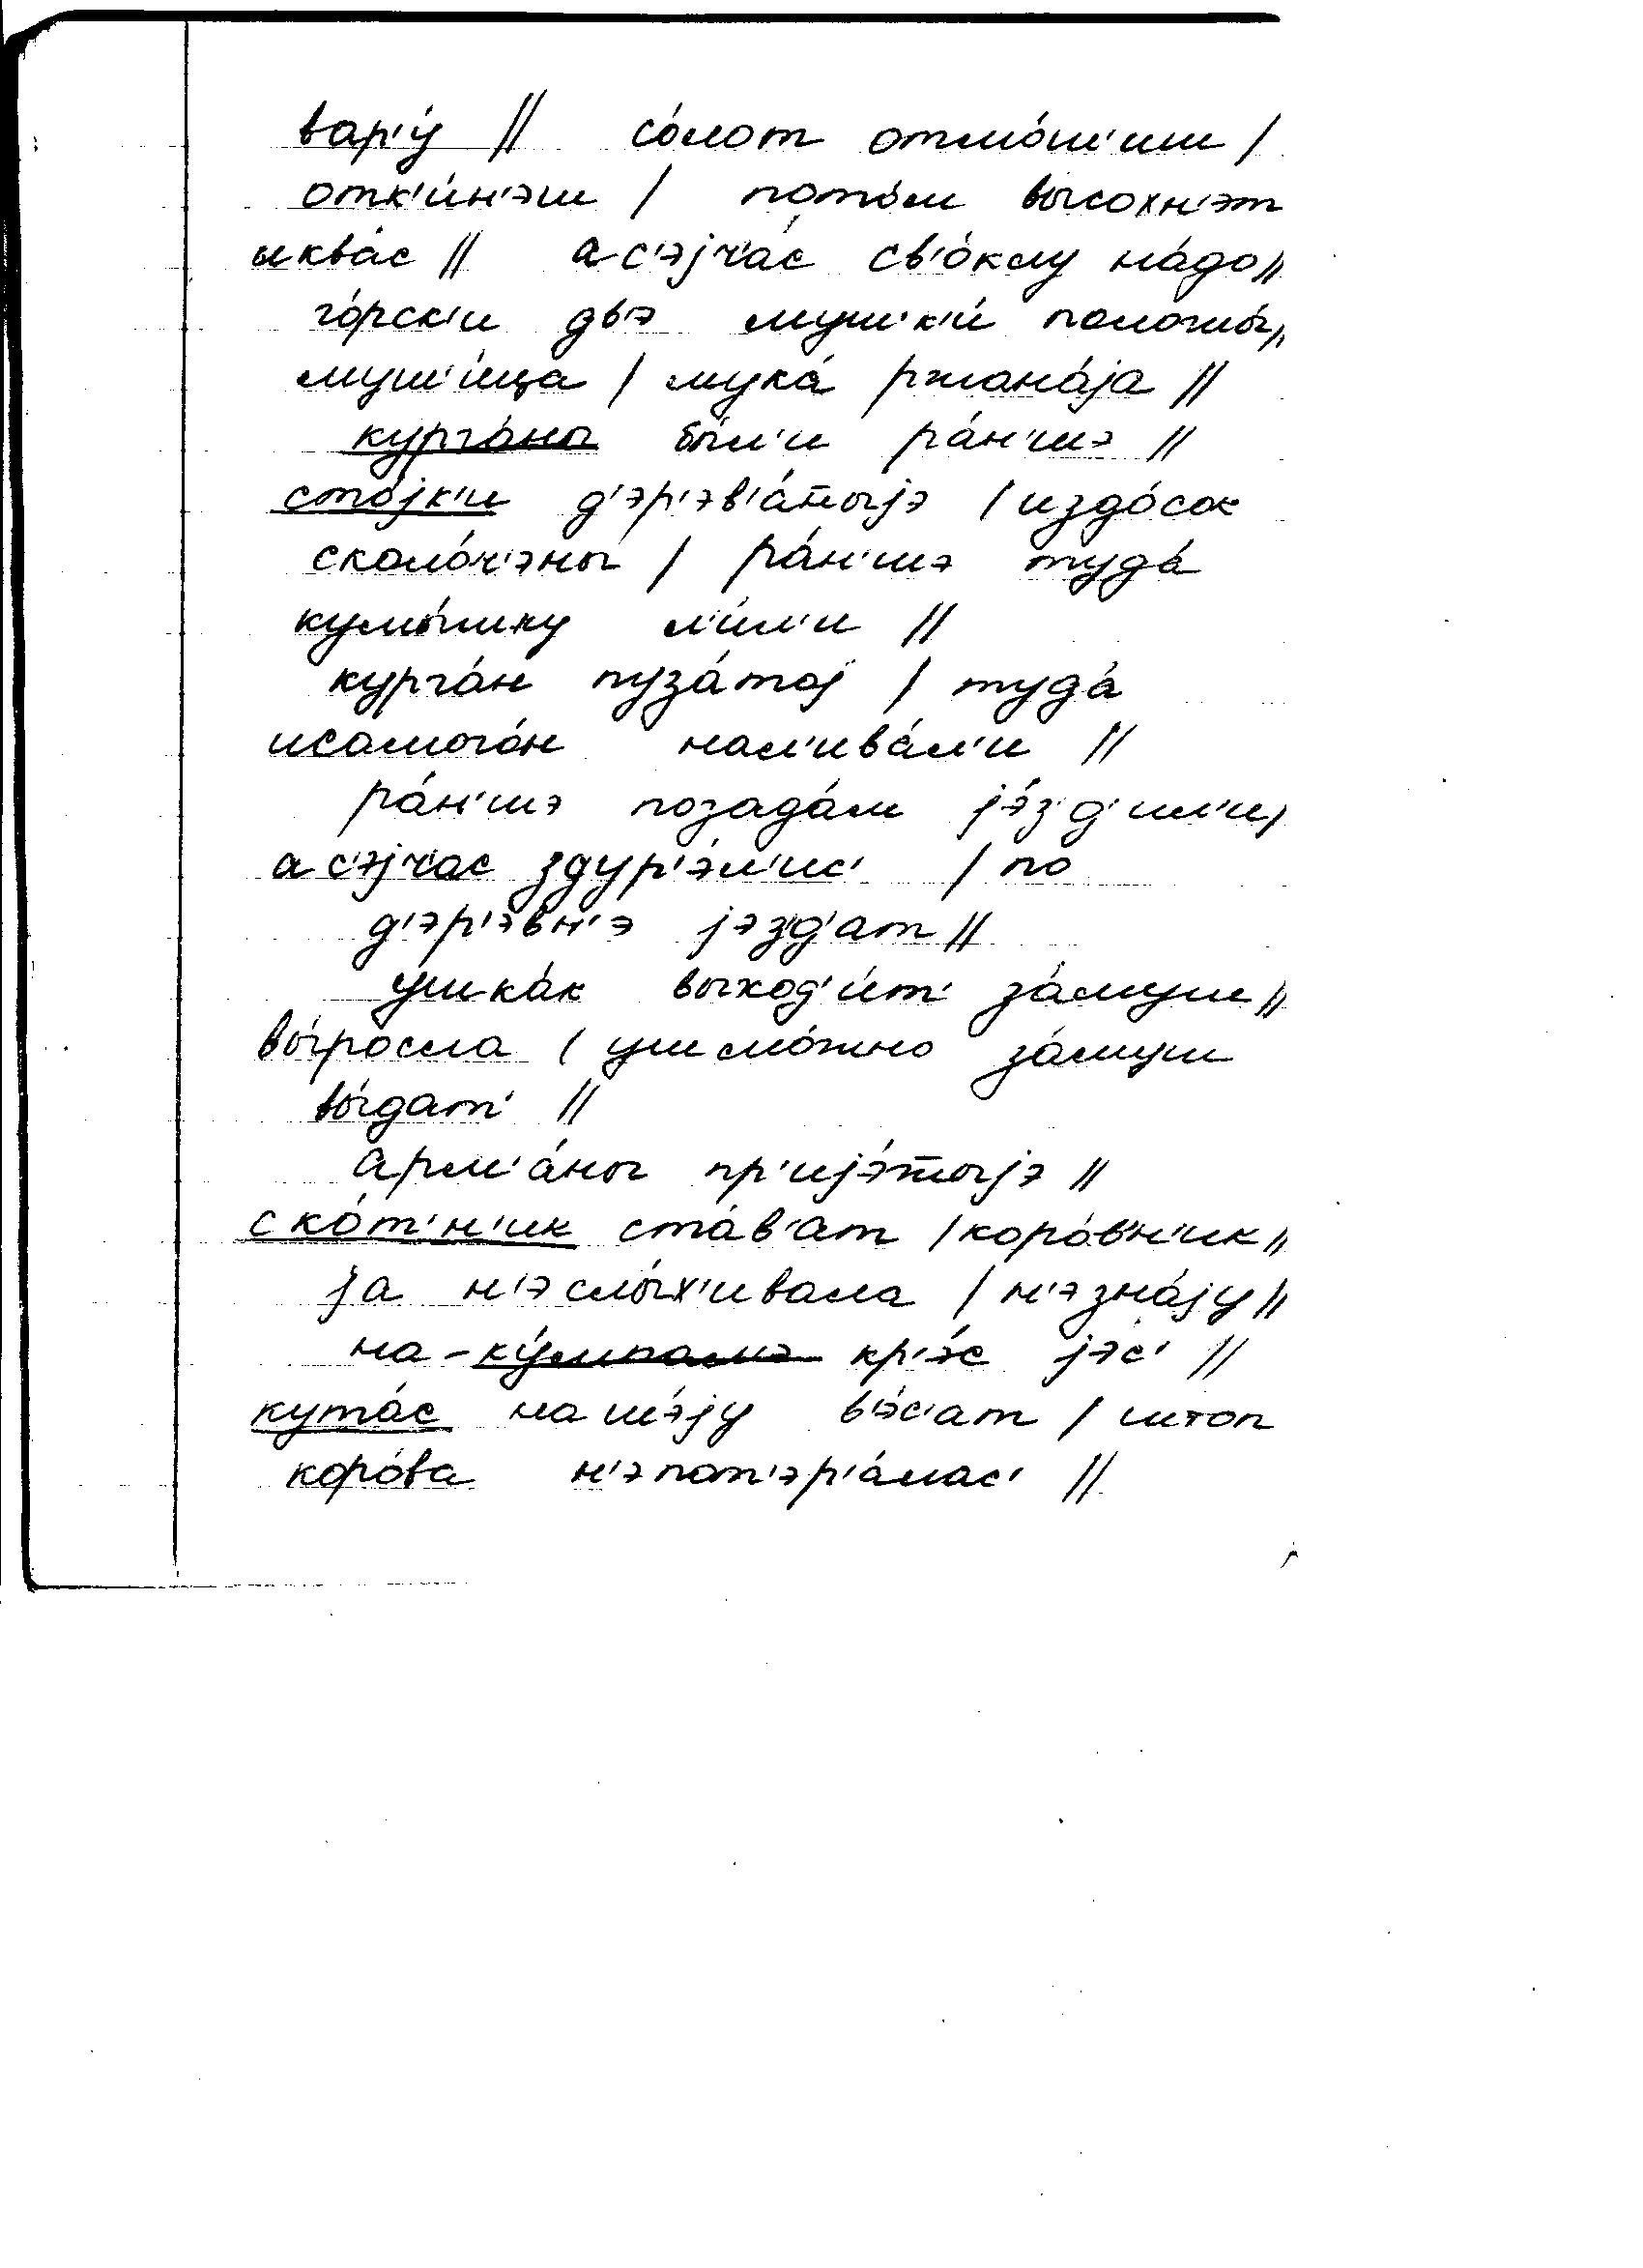 вар'у́ // со́лот отмо́ч'иш /
отк'и́н'эш / пото́м высохн'эт
иква́с // ас'эjч'а́с св'о́клу на́до //
го́рск'и дв'э муч'к'и́ положы́ //
муч'и́ца / мука́ ржана́jа //
курга́ны бы́л'и ра́н'шэ //
сто́jк'и д'эр'эв'а́тыjэ / издо́сок
сколо́ч'эны / ра́н'шэ туда́
кумы́шку л'и́л'и //
курга́н пуза́тоj / туда́
исамого́н нал'ива́л'и //
ра́н'шэ позада́м jэ́з'д'ил'и /
ас'эjч'ас здур'э́л'ис' / по
д'эр'э́вн'э jэз'д'ат //
ушка́к выход'и́т' за́муш //
вы́росла / ушмо́жно за́муш
вы́дат' //
арм'а́ны пр'иjэ́тыjэ //
ско́т'н'ик ста́в'ат / коро́вн'ик //
jа н'эслы́х'ивала / н'эзна́jу //
на-ку́мполэ кр'э́с jэс' //
кута́с нашэ́jу в'э́с'ат / штоп
коро́ва н'эпот'эр'а́лас' //